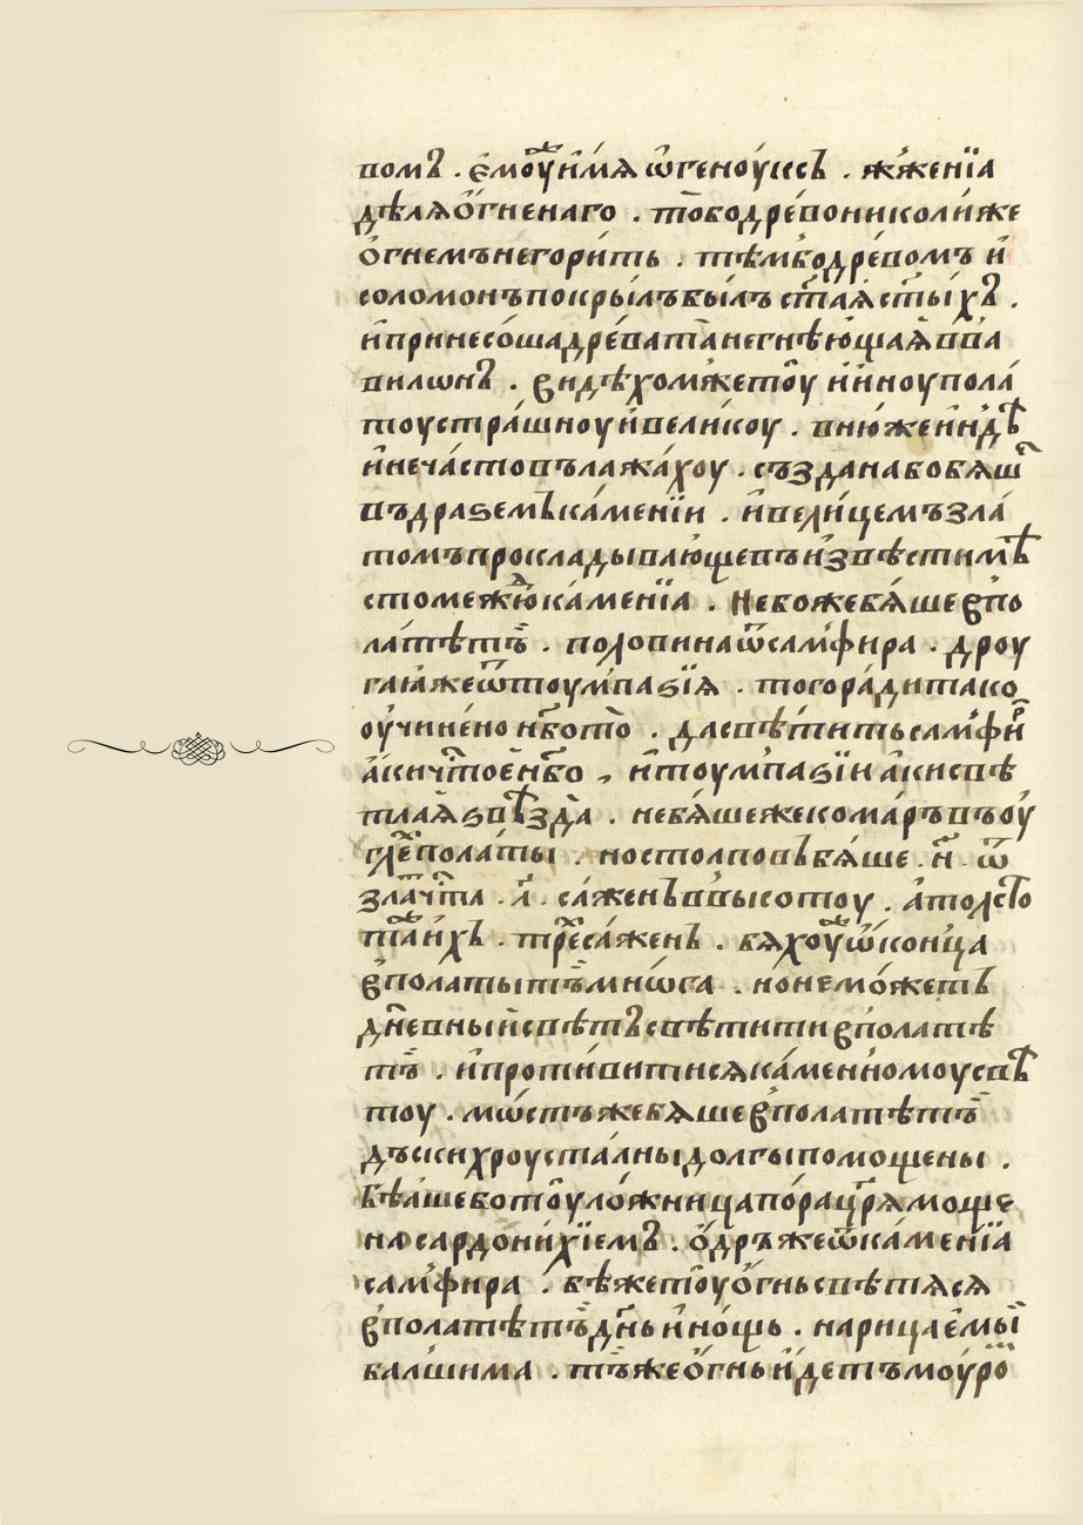 вомъ . ємоу̑ж и́мѧ ѡ҆гено́уксъ . жже́нїа
дѣлѧ ѻ҆́гненаго . то̑ бо дре́во николи́же
ѻ҆гнемъ не гори́ть . тѣм бо дре́вомъ и҆
соломонъ покры́лъ бы́лъ ст҃аѧ ст҃ы́хъ .
и҆ принесо́ша дре́ва та̑ не гнѣю́щаѧ в ва
вилѡнъ . видѣхом же тоу̑ и҆ и́ноу пола́
тоу стра́шноу и҆ вели́коу . в ню́же и҆ и҆ндѣ
и҆ не ча́сто въ лажа́хоу . създана бо бѧш
въ драѕемъ ка́менїи . и҆ вели́цемъ зла́
томъ прокладываю҆ще въ и҆звѣстим
сто межю̀ ка́менїа . не бо же бѧ́ше в по
ла́тѣ тъ̑ . половина ѿ самфира . дроу
гаꙗ же ѿ тоумпаѕїѧ . того ра́ди тако
оу҆чине́но нб҃о то̑ . да свѣ́тить самфи́р
а҆ки чи҃тое нб҃о , и҆ тоумпаѕїи а҆ки свѣ
тлаѧ ѕвѣзда̀ . не бѧ́ше же кома́ръ въ оу҆
глѣ̑х пола́ты . но столповъ бѧ́ше . н҃ . ѿ
зла́та чи҃та . л҃ . са́женъ в высотоу . а҆ толсто
та и҆́хъ . тре̑х са́женъ . бѧхоу̑ж ѡ҆ко́нца
в полаты тъ̑ мнѡ́га . но не мо́жетъ
дн҃евныи свѣтъ свѣтити в полатѣ
тъ̑ . и҆ проти́витисѧ ка́менномоу свѣ
тоу . мѡ́стъ же бѧше в полатѣ тъ̑
дъски хроуста́лны долгы помощены .
бѣа́ше бо тоу̑ ло́жница по́ра цр҃ѧ моще
на сардони́хїемъ . ѻ҆́дръ же ѿ ка́менїа
самфира . бѣ же тоу̑ ѻ҆́гнь свѣтѧсѧ
в полатѣ тъ̑ дн҃ь и҆ но́щь . нарицае́мыи
калшима . тъ̑ же ѻ҆́гнь и҆детъ моу́ро